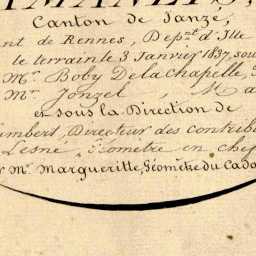 Canton de Janzé,
nt de Rennes, Dep.nt d'Ille
le terrain le 3 Janvier 1837, sou
Mr. Boby Delachapelle,
Mr. Jonzel, Ma
et sous la Direction de
umbert, Directeur des contrib
Lesné, Géometre en che
r Mr. Margueritte, Géomètre du Cada